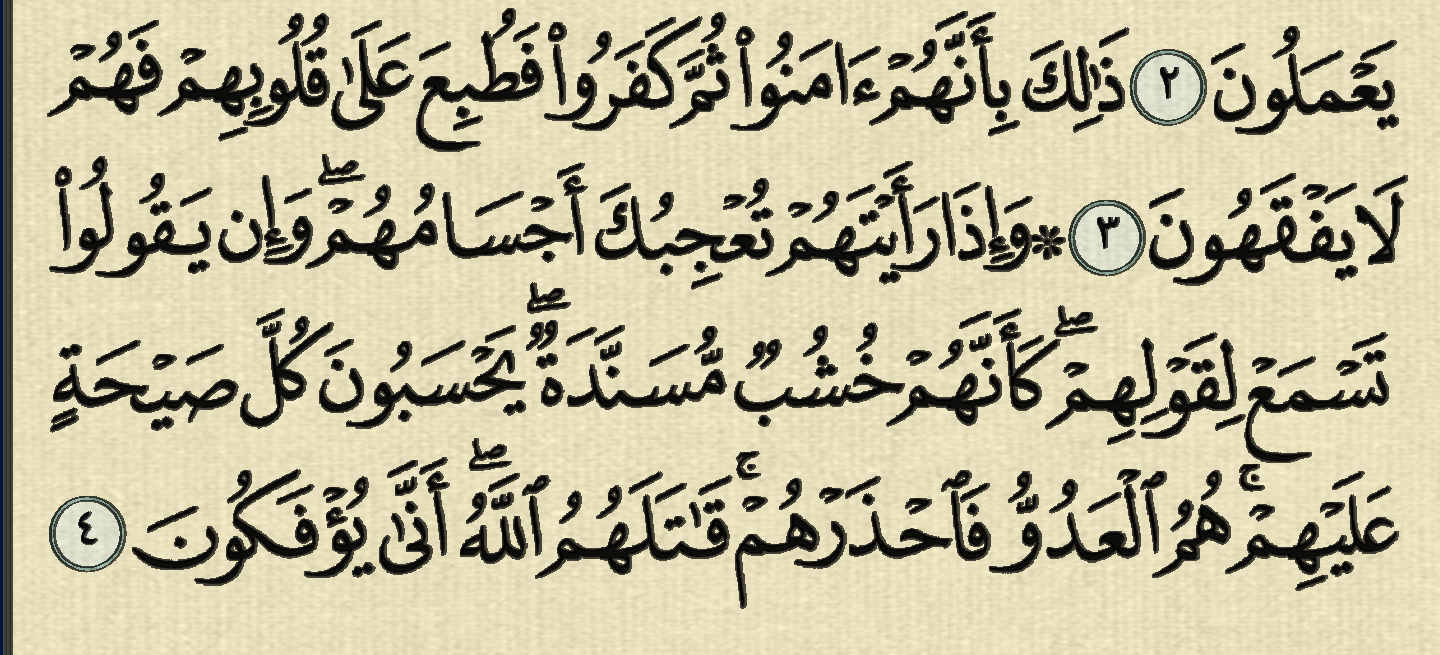 يَعْمَلُونَ ٢ ذَٰلِكَ بِأَنَّهُمْ ءَامَنُوا۟ ثُمَّ كَفَرُوا۟ فَطُبِعَ عَلَىٰ قُلُوبِهِمْ فَهُمْ
لَا يَفْقَهُونَ ٣ ۞ وَإِذَا رَأَيْتَهُمْ تُعْجِبُكَ أَجْسَامُهُمْ ۖ وَإِن يَقُولُوا۟
تَسْمَعْ لِقَوْلِهِمْ ۖ كَأَنَّهُمْ خُشُبٌ مُّسَنَّدَةٌ ۖ يَحْسَبُونَ كُلَّ صَيْحَةٍ
عَلَيْهِمْ ۚ هُمُ ٱلْعَدُوُّ فَٱحْذَرْهُمْ ۚ قَـٰتَلَهُمُ ٱللَّهُ ۖ أَنَّىٰ يُؤْفَكُونَ ٤